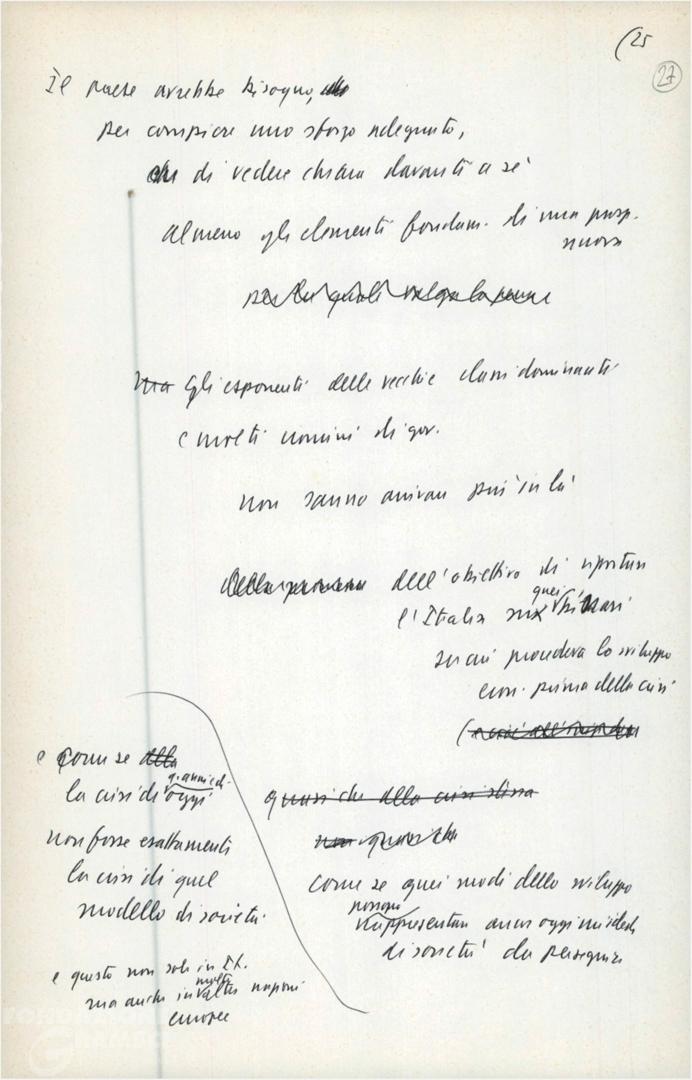 (25
27
Il paese avrebbe bisogno,
per compiere uno sforzo adeguato,
di vedere chiaro davanti a sé
almeno gli elementi fondam. di una prosp.
nuova
per la quale valga la pena
ma gli esponenti delle vecchie classi dominanti
e molti uomini di gov.
non sanno andare più in là
dell'obiettivo di riportare
quei
l'Italia sui binari
su cui procedeva lo sviluppo
econ. prima della crisi
e come se
q. anni e di
la crisi di oggi
non fosse esattamente
la crisi di quel
modello di società
e questo non solo in It.
molte
ma anche in altre nazioni
europee
quasi che dalla crisi stessa
quasi che
come se quei modi dello sviluppo
possano
rappresentare ancor oggi modelli
di società da perseguire